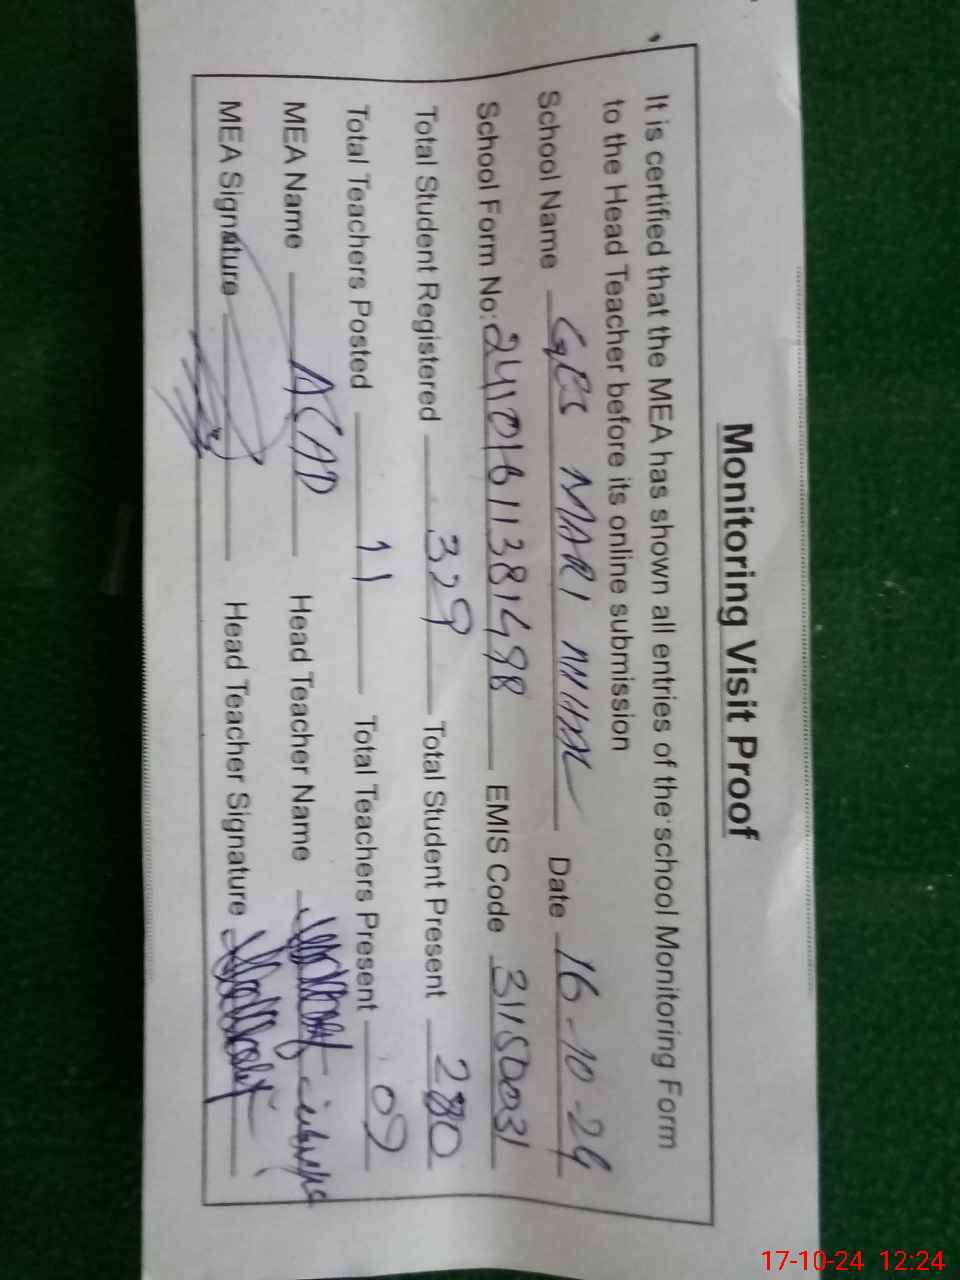 Monitoring Visit Proof
It is certified that the MEA has shown all entries of the school Monitoring Form
to the Head Teacher before its online submission
School Name GES MARI Date 16-10-24
School Form No: 24101611381498 EMIS Code 31150031
Total Student Registered 329 Total Student Present 280
Total Teachers Posted 11 Total Teachers Present 09
MEA Name ASAD Head Teacher Name
MEA Signature Head Teacher Signature
17-10-24 12:24